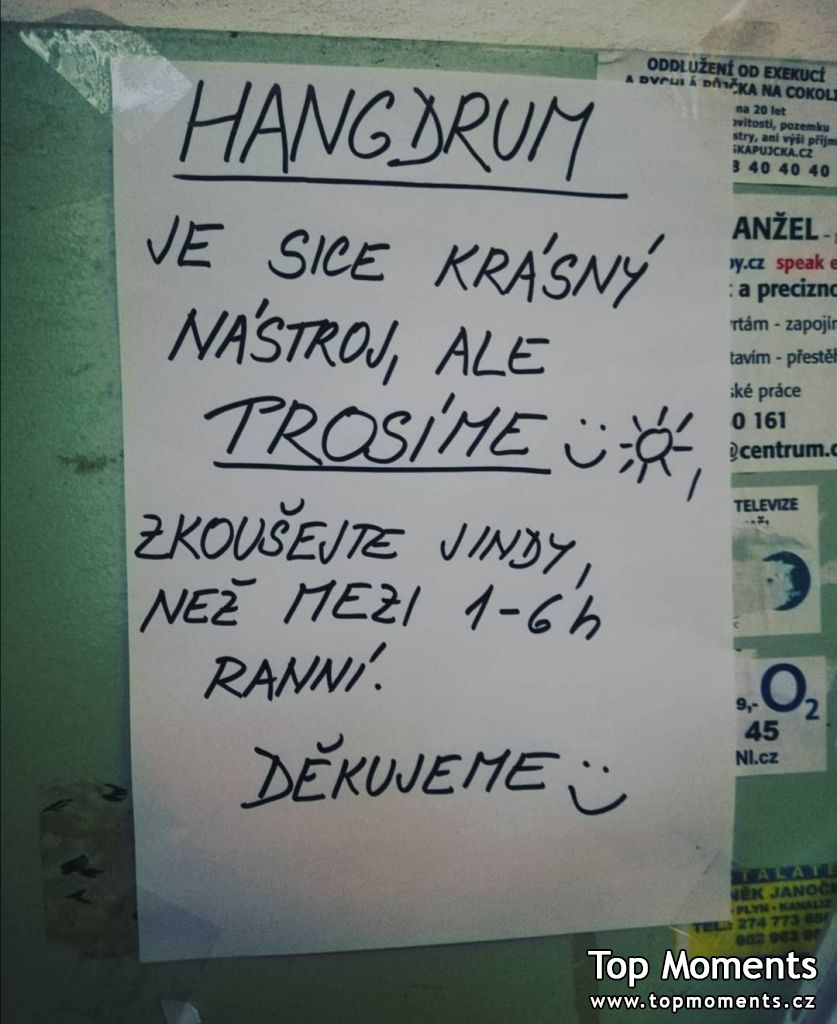 HANGDRUM
JE SICE KRÁSNÝ
NÁSTROJ, ALE
PROSÍME
ZKOUŠEJTE JINDY,
NEŽ MEZI 1-6h
RANNÍ.
DĚKUJEME
ODDLUŽENÍ OD EXEKUCÍ
A RYCHLÁ PŮJČKA NA COKOLI
na 20 let
ovitosti, pozemku
stry, ani výši příjm
SKAPUJCKA.CZ
8 40 40 40
ANŽEL -
by.cz speak e
t a precizno
vrtám - zapojím
tavím - přestěh
ské práce
0 161
@centrum.c
TELEVIZE
9,- O2
45
NI.cz
TALATÉ
NĚK JANOČ
- PLYN - KANALIZ
TEL.: 274 773
602 963
Top Moments
www.topmoments.cz